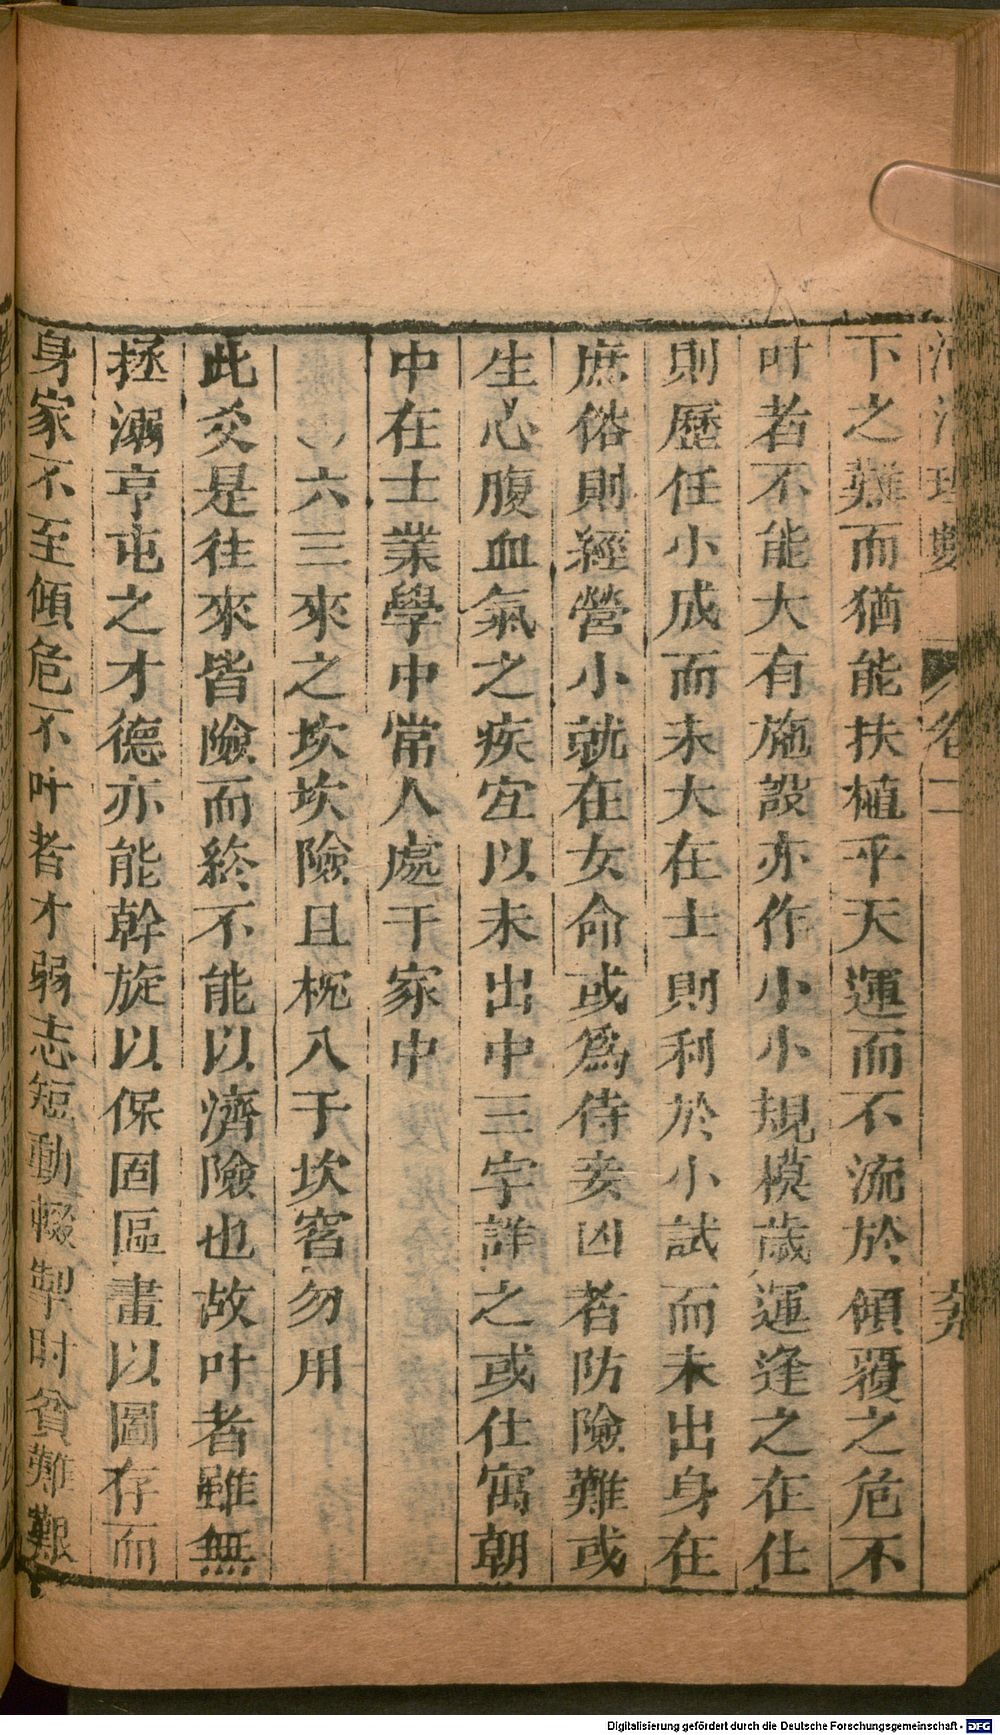 河洛理數 卷二
下之難而猶能扶植乎天運而不流於傾覆之危不
叶者不能大有施設亦作小小規模歲運逢之在仕
則歷任小成而未大在士則利於小試而未出身在
庶俗則經營小就在女命或爲侍妾凶者防險難或
生心腹血氣之疾宜以未出中三字詳之或仕寓朝
中在士業學中常人處于家中
六三來之坎坎險且枕入于坎窞勿用
此爻是往來皆險而終不能以濟險也故叶者雖無
拯溺亨屯之才德亦能幹旋以保固區畫以圖存而
身家不至傾危不叶者才弱志短動輟掣肘貧難艱
Digitalisierung gefördert durch die Deutsche Forschungsgemeinschaft - DFG